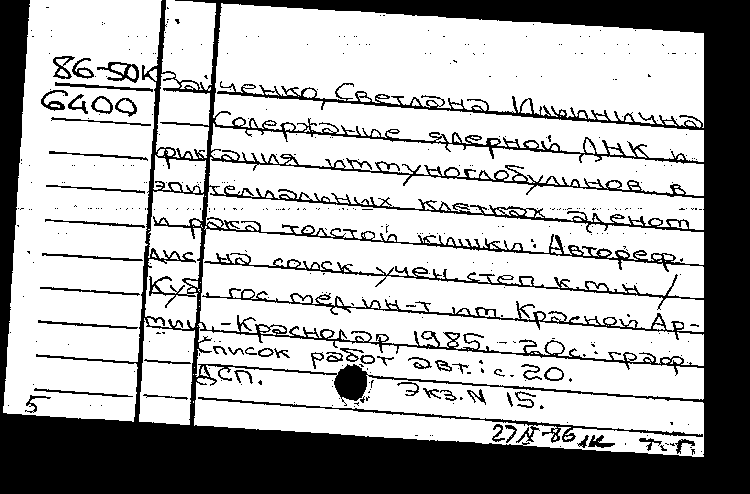 86-50К Зайченко, Светлана Ильинична
6400
Содержание ядерной ДНК и
фиксация иммуноглобулинов в
эпителиальных клетках аденом
и рака толстой кишки: Автореф.
дис. на соиск. учен. степ. к.м.н /
Куб. гос. мед. ин-т им. Красной Ар-
мии. - Краснодар, 1985. - 20с.: граф.
Список работ авт.: с. 20.
ДСП. Экз. N 15.
5
Т. П